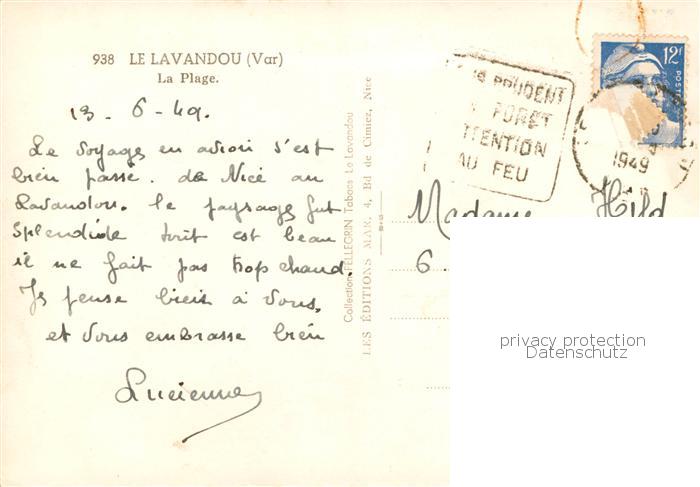 938 LE LAVANDOU (Var)
La Plage.
13 - 6 - 49.
Le voyage en avion s'est
bien passé. de Nice au
Lavandou. le paysage fut
splendide tout est beau
il ne fait pas trop chaud.
Je pense bien à vous,
et vous embrasse bien
Lucienne
Collection PELLEGRIN Tabacs Le Lavandou
LES ÉDITIONS MAR, 4, Bd de Cimiez, Nice
PRUDENT
FORET
ATTENTION
AU FEU
12F
POSTES
1949
Madame Hild
6
privacy protection
Datenschutz